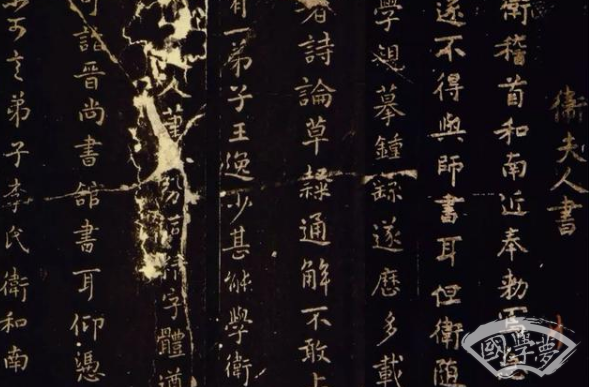 衛夫人書
衛稽首和南近奉勅
遂不得與師書耳但衛隨
學規摹鍾繇遂歷多載
著詩論草隸通解不敢上
有一弟子王逸少甚能學衛
人 字體遒
可詣晉尚書館書耳仰憑
弟子李氏衛和南
國學夢